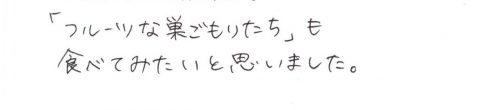 「フルーツな巣ごもりたち」も
食べてみたいと思いました。